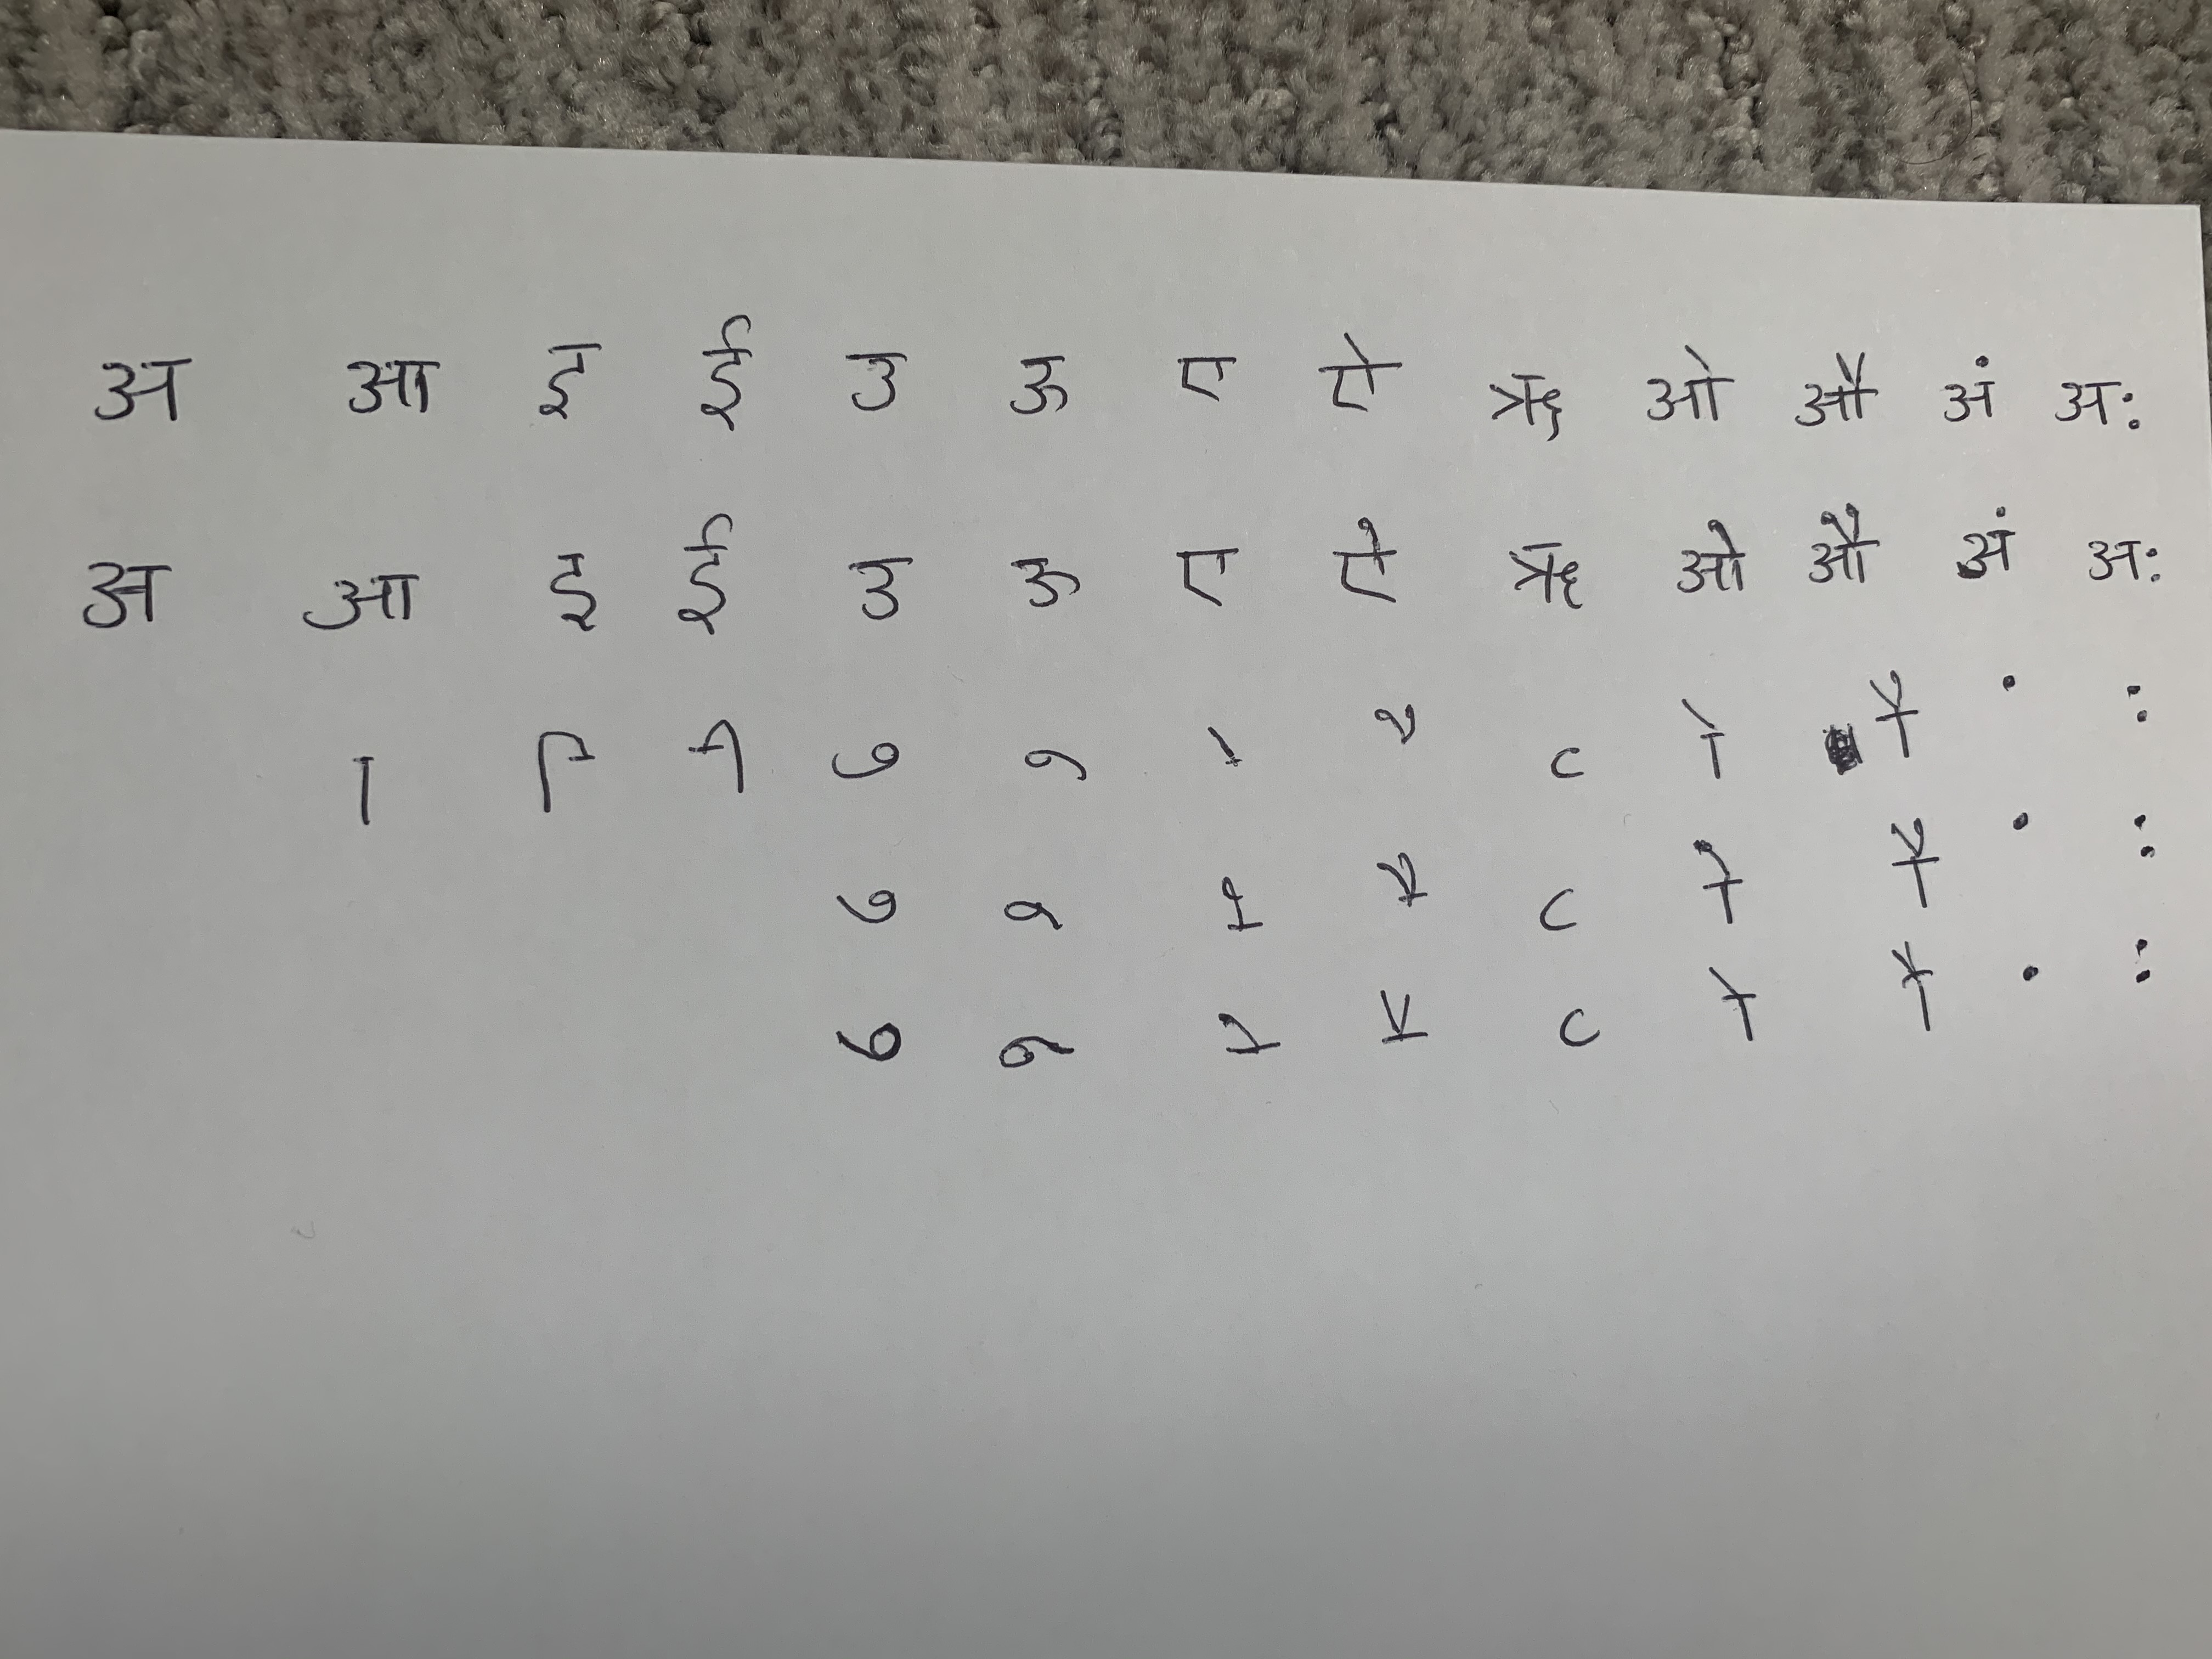 अ आ इ ई उ ऊ ए ऐ ऋ ओ औ अं अः
अ आ इ ई उ ऊ ए ऐ ऋ ओ औ अं अः
ा ि ी ु ू े ै ृ ो ौ ं ः
ु ू े ै ृ ो ौ ं ः
ु ू े ै ृ ो ौ ं ः